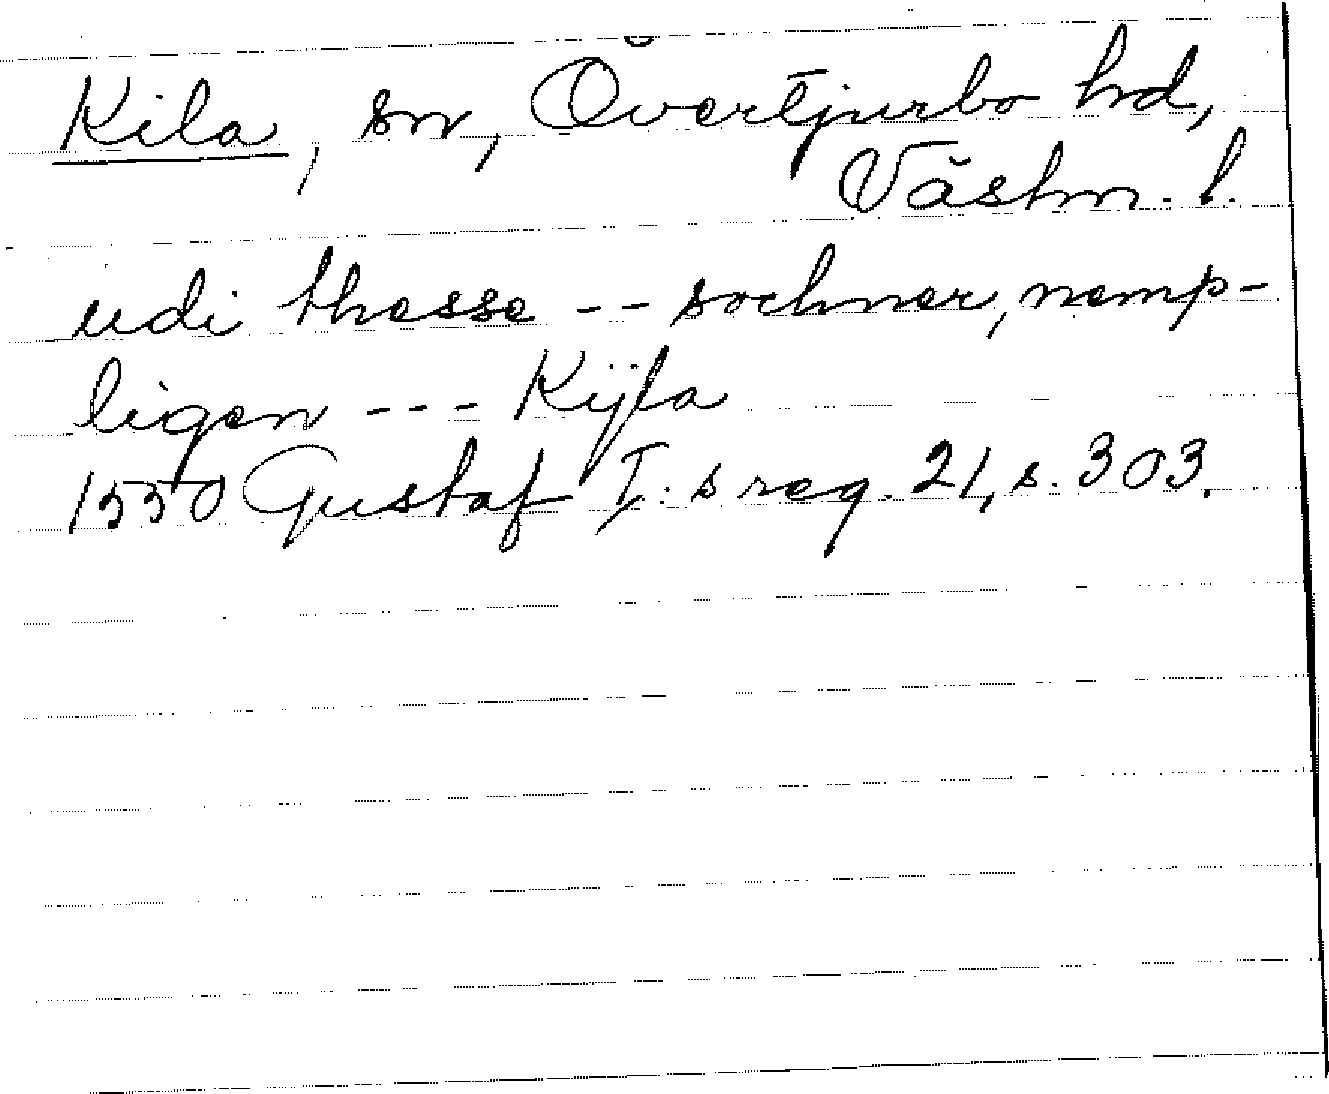 Kila, sn, Övertjurbo hd,
Västm. l.
udi thesse -- sochner, nemp-
ligen --- Kÿla
1550 Gustaf I:s reg. 21, s. 303.